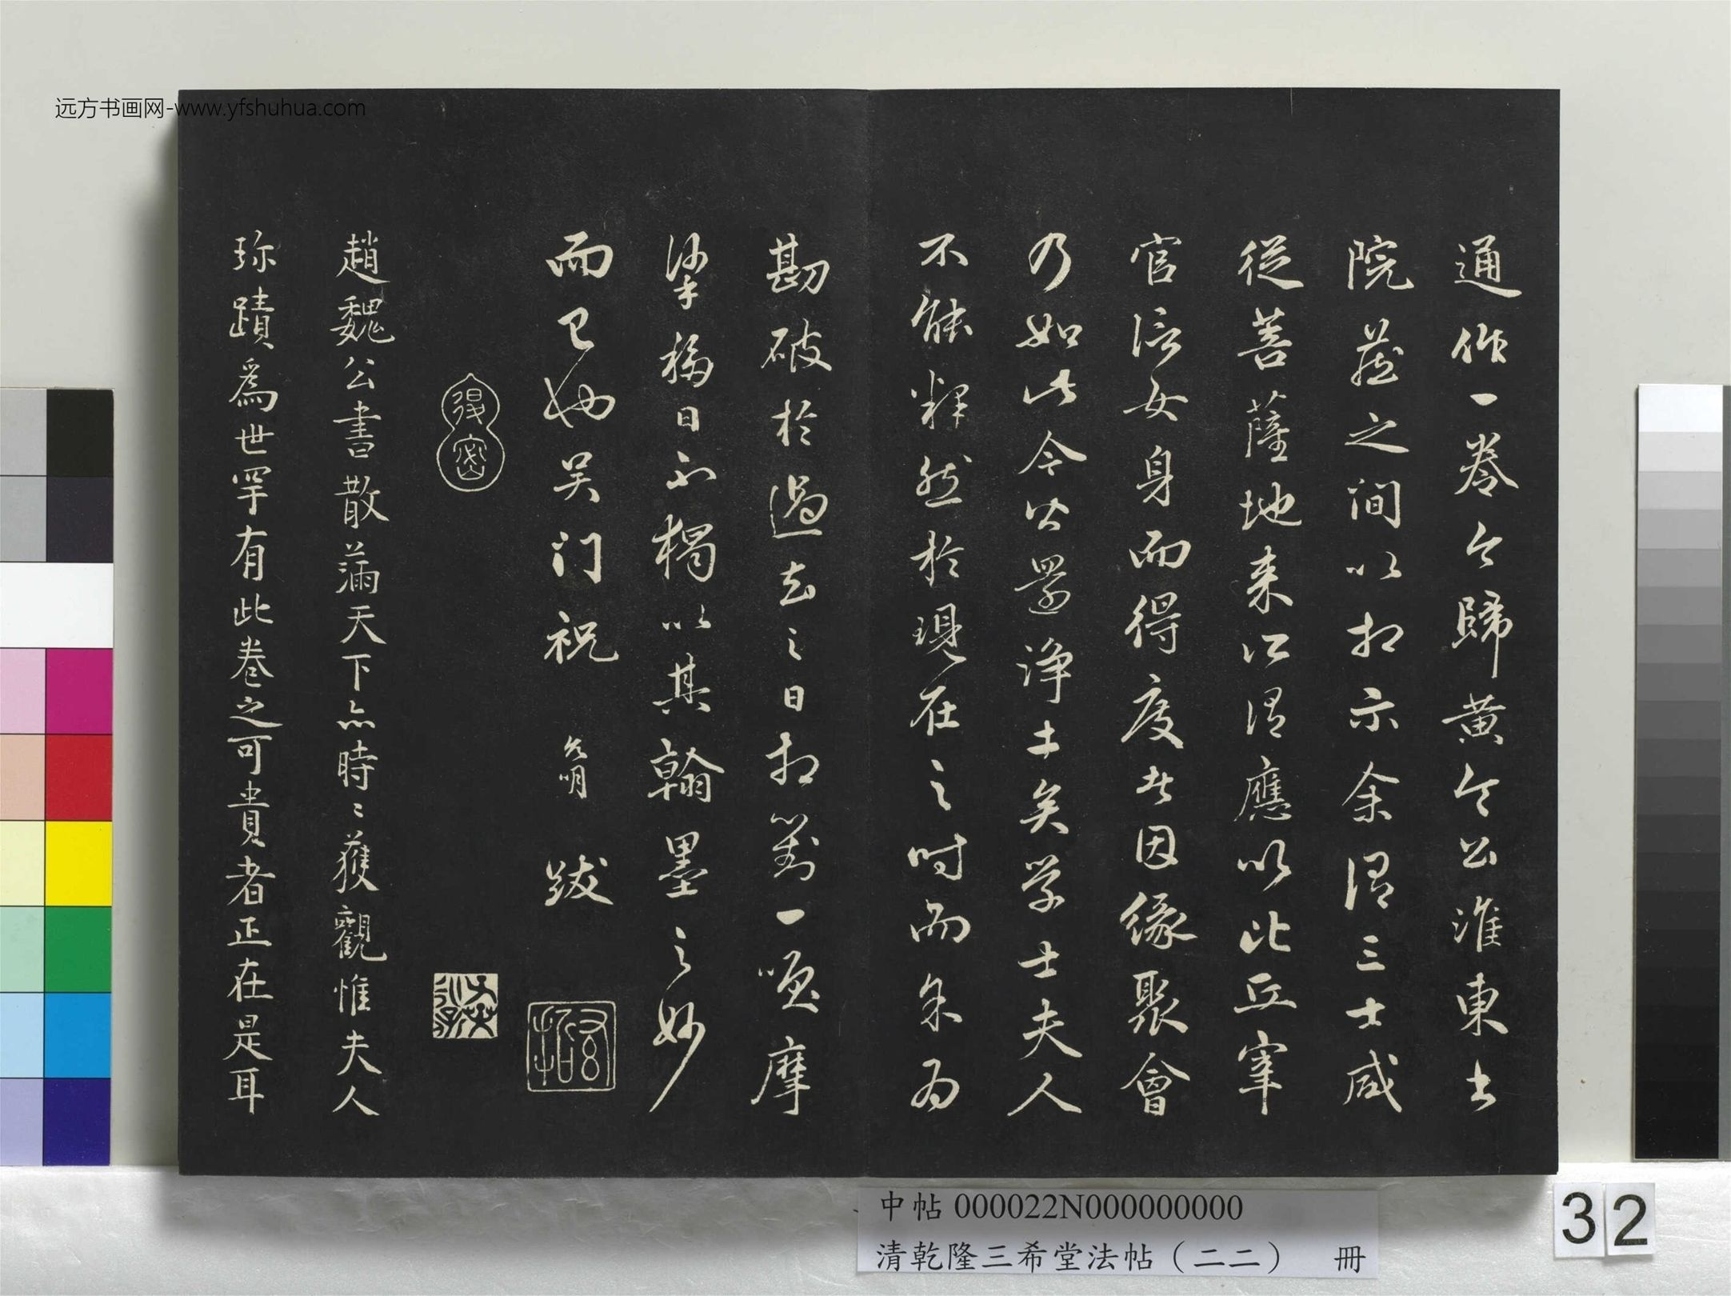 通作一卷今歸黃令公淮東書
院葢之間以相示余謂三士咸
從菩薩地來江謂應以比丘宰
官信女身而得度者因緣聚會
乃如此今皆還淨土矣學士夫人
不能釋然於現在之時而余为
勘破於過去之日相對一嘆摩
挲移日不獨以其翰墨之妙
而已也吴门祝允明跋
趙魏公書散滿天下亦時〻獲觀惟夫人
珎蹟爲世罕有此卷之可貴者正在是耳
远方书画网-www.yfshuhua.com
中帖 000022N000000000
清乾隆三希堂法帖（二二） 冊
32